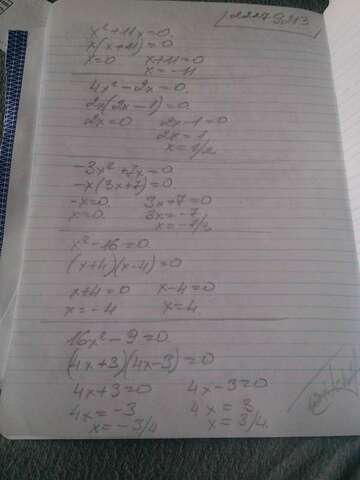 x²+11x=0.
x(x+11)=0.
x=0 x+11=0
x=-11
4x²-2x=0.
2x(2x-1)=0.
2x=0 2x-1=0.
2x=1
x=1/2
-3x²+7x=0
-x(3x+7)=0.
-x=0. 3x+7=0
x=0. 3x=-7
x=-7/3
x²-16=0.
(x+4)(x-4)=0.
x+4=0 x-4=0
x=-4 x=4.
16x²-9=0.
(4x+3)(4x-3)=0
4x+3=0 4x-3=0
4x=-3 4x=3
x=-3/4 x=3/4.